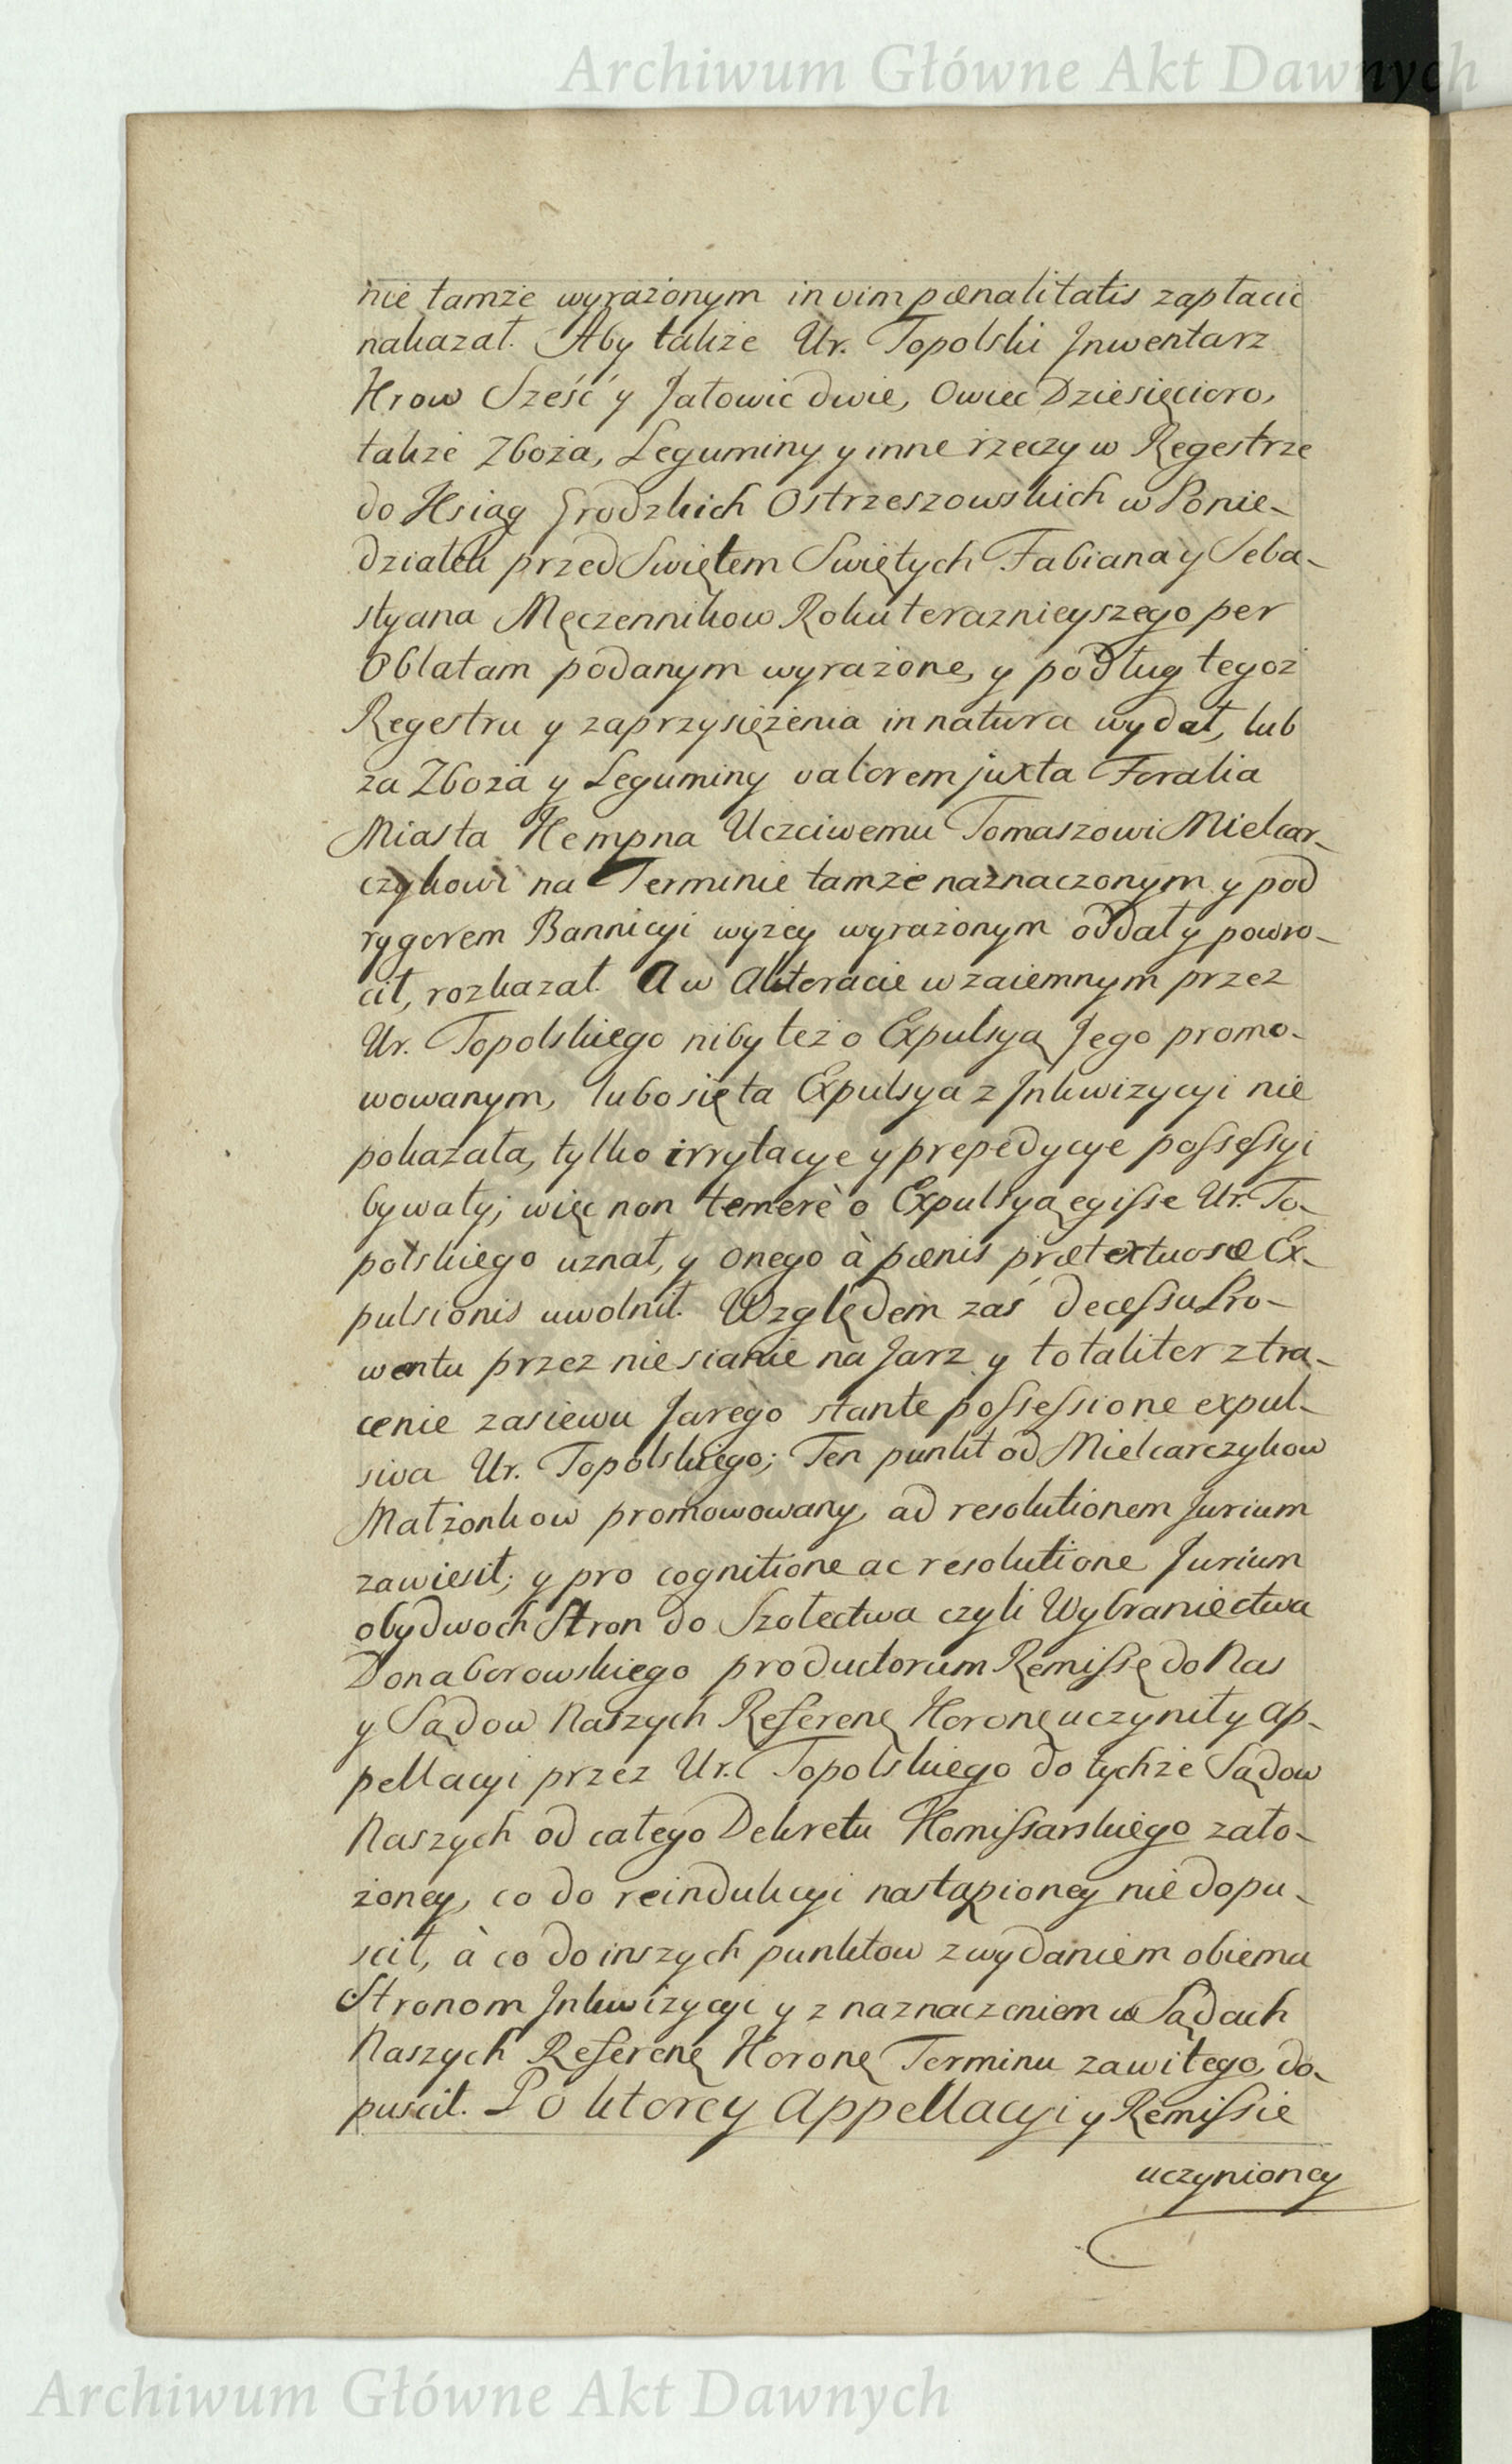 Archiwum Główne Akt Dawnych
nie tamże wyrażonym in vim pœnalitatis zapłacić
nakazał. Aby także Ur. Topolski Inwentarz
Krow Sześć y Jałowic dwie, Owiec Dziesięcioro,
także Zboża, Leguminy y inne rzeczy w Regestrze
do Ksiąg Grodzkich Ostrzeszowskich w Ponie-
działek przed Swiętem Swiętych Fabiana y Seba-
styana Męczennikow Roku teraznieyszego per
Oblatam podanym wyrażone, y podług tegoż
Regestru y zaprzysiężenia in natura wydał, lub
za Zboża y Leguminy valorem juxta Foralia
Miasta Kempna Uczciwemu Tomaszowi Mielcar-
czykowi na Terminie tamże naznaczonym y pod
rygorem Bannicyi wyżey wyrażonym oddał y powro-
cił, rozkazał. A w Akteracie wzaiemnym przez
Ur. Topolskiego niby też o Expulsyą Jego promo-
wowanym, lubo się ta Expulsya z Inkwizycyi nie
pokazała, tylko irrytacye y prepedycye possessyi
bywały; więc non temerè o Expulsyą egisse Ur. To-
polskiego uznał, y onego à pœnis prætextuosæ Ex-
pulsionis uwolnił. Względem zaś decessu Pro-
wentu przez niesianie na Jarz y totaliter ztra-
cenie zasiewu Jarego stante possessione expul-
siva Ur. Topolskiego; Ten punkt od Mielcarczykow
Małżonkow promowowany, ad resolutionem Jurium
zawiesił; y pro cognitione ac resolutione Jurium
obydwoch Stron do Szołectwa czyli Wybraniectwa
Donaborowskiego productorum Remissę do Nas
y Sądow Naszych Referenę Koronę uczynił y ap-
pellacyi przez Ur. Topolskiego do tychże Sądow
Naszych od całego Dekretu Komissarskiego zało-
żoney, co do reindukcyi nastąpioney nie dopu-
scił, à co do inszych punktow z wydaniem obiema
Stronom Inkwizycyi y z naznaczeniem w Sądach
Naszych Referenę Koronę Terminu zawitego, do-
puscił. Po ktorey Appellacyi y Remissie
uczynioney
Archiwum Główne Akt Dawnych